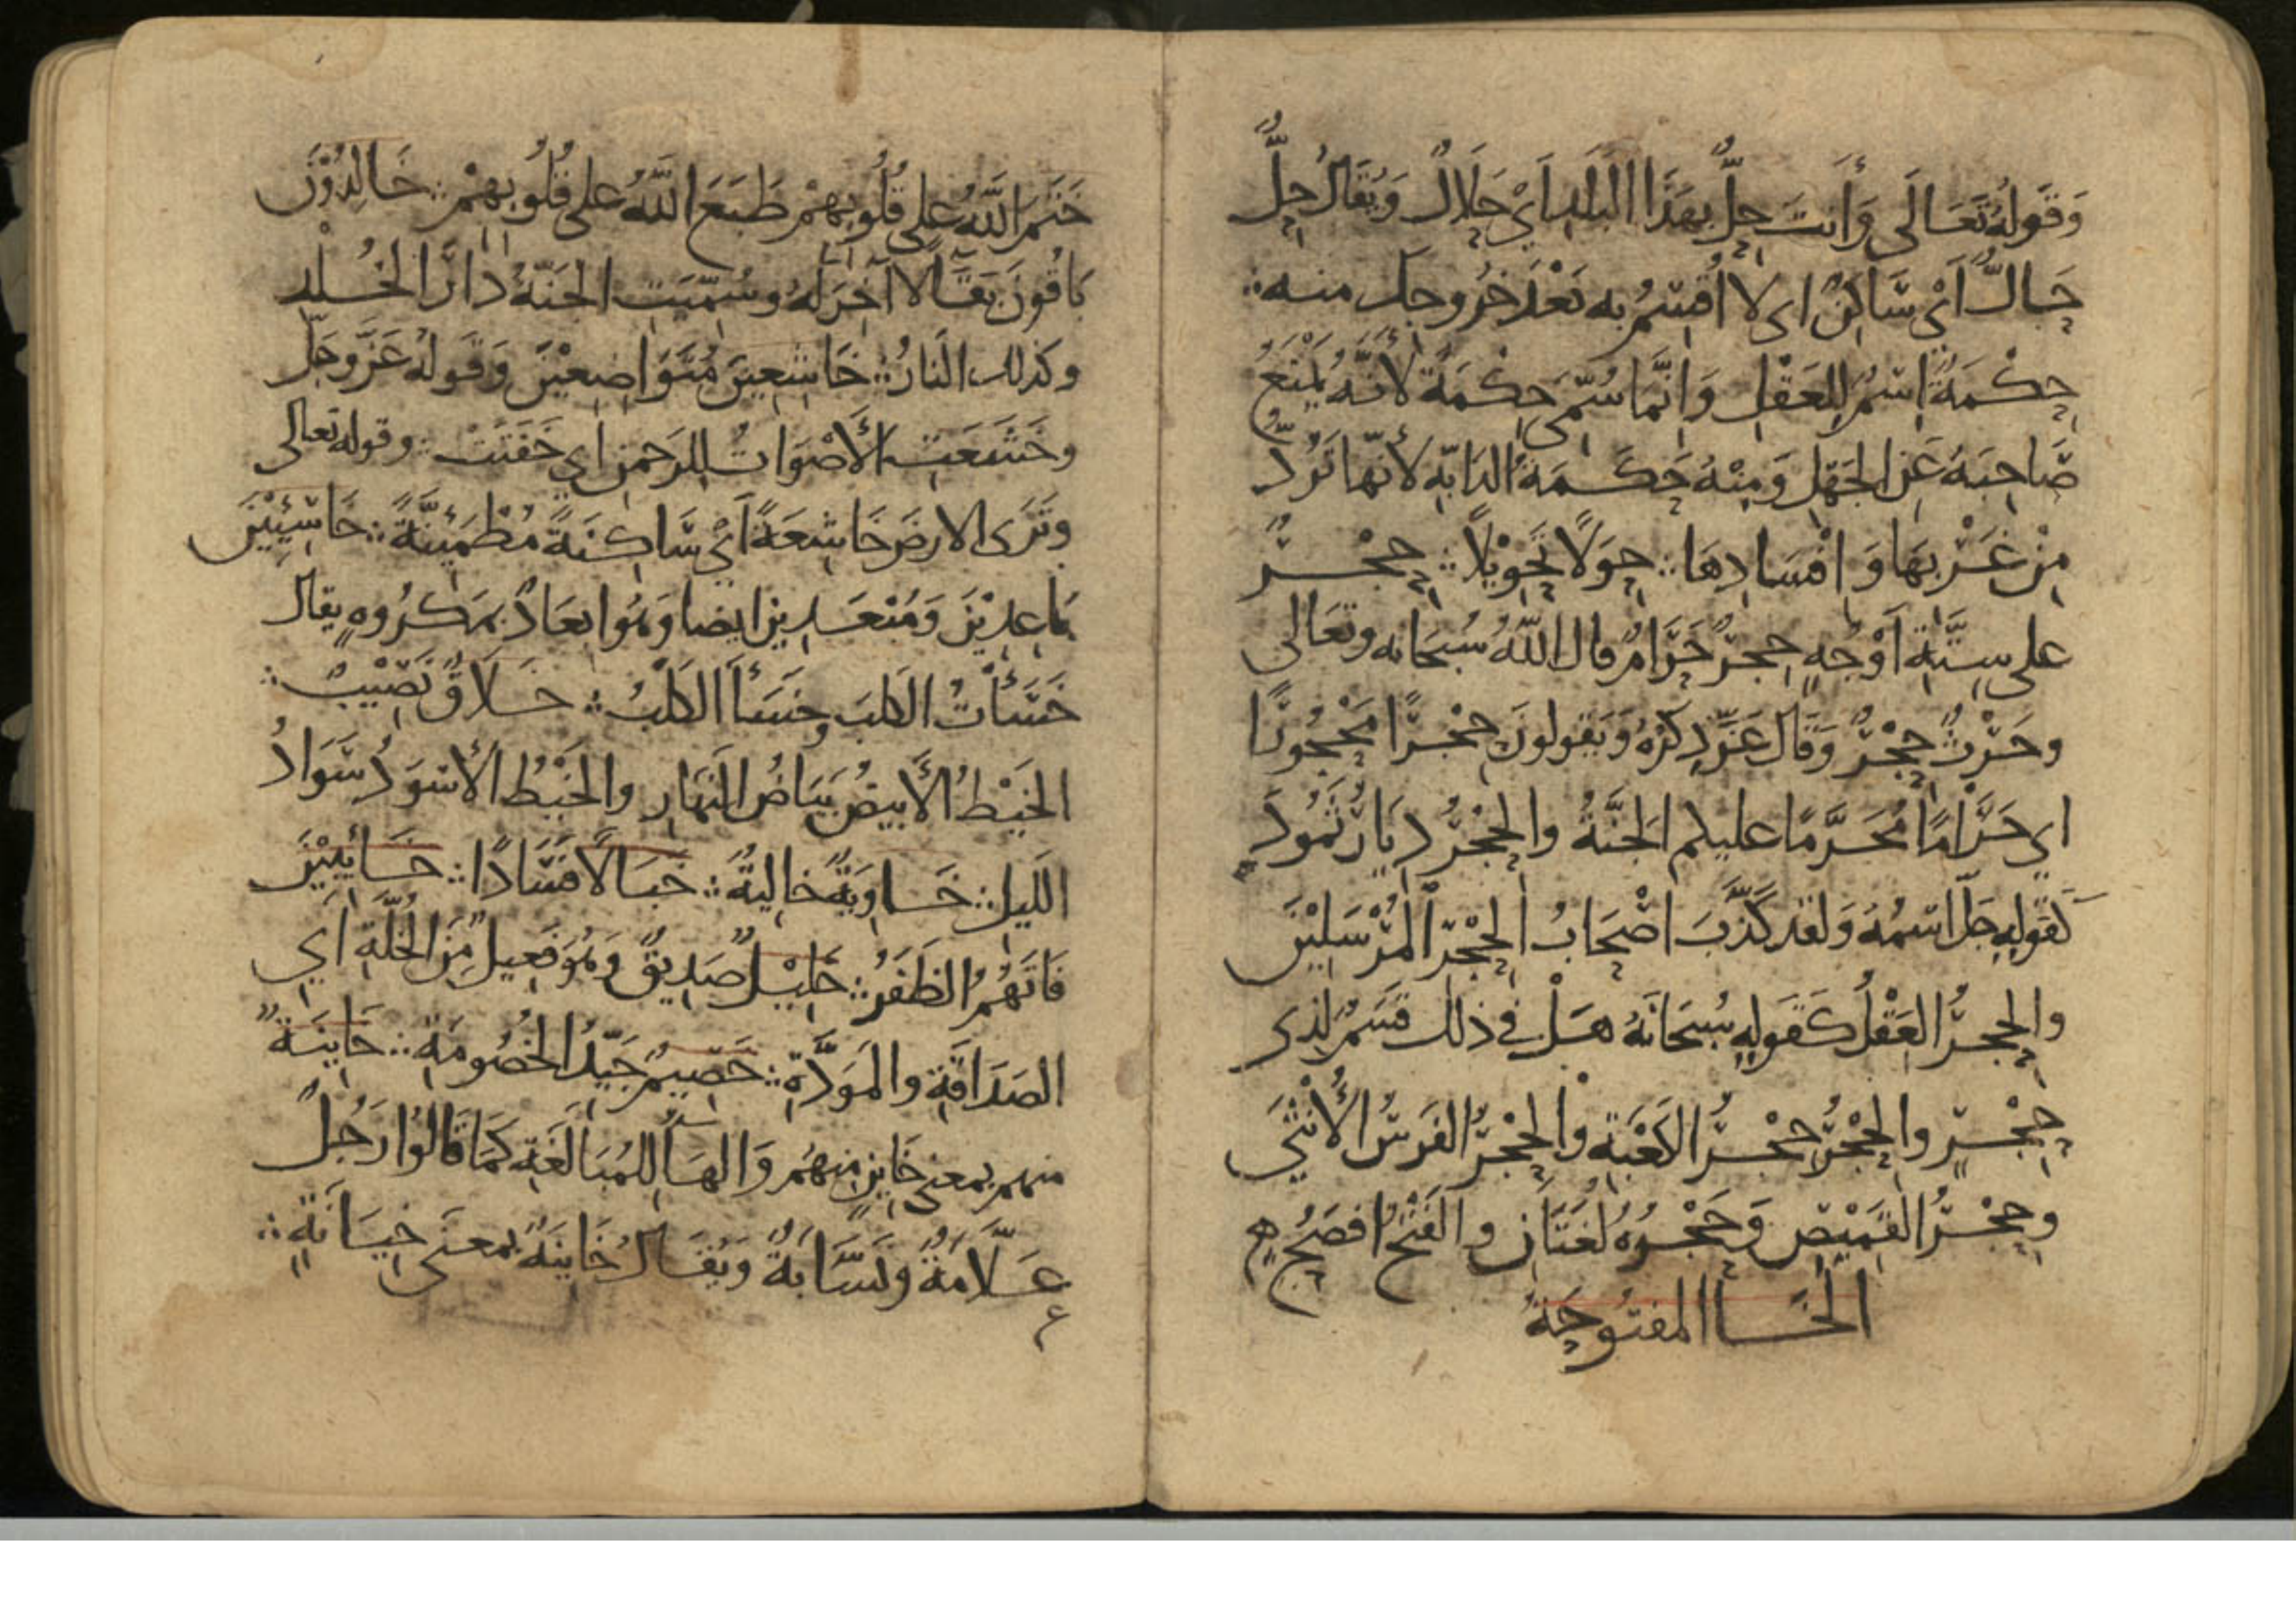 وَقَوْلُهُ تَعَالَى وَأَنتَ حِلٌّ بِهَذَا البَلَدِ أَيْ حَلَالٌ وَيُقَالُ حِلٌّ
حَالٌّ أَيْ سَاكِنٌ اى لا أُقْسِمُ به بَعْدَ خُرُوجِكَ منه
حِكْمَةٌ اسْمٌ لِلعَقْلِ وَانَّمَا سُمِّىَ حِكْمَةً لأَنَّهُ يَمْنَعُ
صَاحِبَهُ عَنِ الجَهْلِ وَمِنْهُ حَكَمَةُ الدَابّةِ لأَنّهَا تَرُدُّ
مِنْ غَرْبِهَا وَافْسَادِهَا حِوَلًا تَحْوِيْلًا حِجْرٌ
على سِتَّةِ أَوْجُهٍ حِجرٌ حَرَامٌ قال اللَّهُ سُبْحَانه وتعَالى
وحَرْثٌ حِجْرٌ وَقَالَ عَزَّ ذِكْرُهُ وَيَقولونَ حِجْرًا مَحْجُورًا
اي حَرَامًا مُحَرَّمًا عليكم الجَنَّةُ والحِجْرُ دِيَارُ ثَمُودَ
كَقَولِهِ جَلَّ اسْمُهُ وَلقد كَذَّبَ اصْحَابُ الحِجْرِ المُرْسَلِيْنَ
والحِجرُ العَقْلُ كَقَولِهِ سُبحَانَهُ هَلْ في ذلك قَسَمٌ لِذى
حِجْرٍ والحِجْرُ حِجْرُ الكَعْبَةِ والحِجْرُ الفَرَسُ الأُنْثَى
وحِجْرُ القَمِيْصِ وَحَجْرُهُ لُغَتَانِ والفَتْحُ افصَحُ
الخَا المفتُوحَةُ
خَتَمَ اللَّهُ على قُلُوبِهِمْ طَبَعَ اللَّهُ على قُلُوبِهِمْ خَالِدُوْنَ
بَاقُونَ بَقَآءً لا آخِرَ لَهُ وسُمِّيَتِ الجَنَّةُ دَارَ الخُلْدِ
وكذلك النَارُ خَاشِعِينَ مُتَوَاضِعِيْنَ وَقَولُهُ عَزَّ وجَلَّ
وخَشَعَتِ الأَصْوَاتُ لِلرَحمنِ اي خَفَتَتْ وقوله تعالى
وتَرَى الارضَ خَاشِعَةً أَيْ سَاكِنَةً مُطْمَئِنَّةً خَاسِئِيْنَ
بَاعِدِيْنَ وَمُبْعَدِينَ ايضا وَهُوَ ابعَادٌ بمَكرُوهٍ يقال
خَسَأْتُ الكلبَ وخَسَأَ الكَلْبُ خَلَاقٌ نَصِيْبٌ
الخَيْطُ الأَبيَضُ بَيَاضُ النَهَارِ والخَيْطُ الأَسْوَدُ سَوَادُ
اللَيلِ خَاوِيَةٌ خالِيةٌ خَبَالًا فَسَادًا خَائِبِيْنَ
فَاتَهُمُ الظَفَرُ خَلِيْلٌ صَدِيقٌ وَهُوَ فَعِيلٌ مِنَ الخُلَّةِ أَي
الصَدَاقَةِ والمَوَدَّةِ خَصِيمٌ جَيِّدُ الخُصُومَةِ خَاينَةٌ
منهم بمعنى خَاينٍ مِنهُم وَالهَآ لِلمُبَالَغَةِ كَمَا قَالُوا رَجُلٌ
عَلَّامَةٌ ونَسَّابَةٌ وَيُقَالُ خَاينَةٌ بمعنَى خِيَانَةٍ